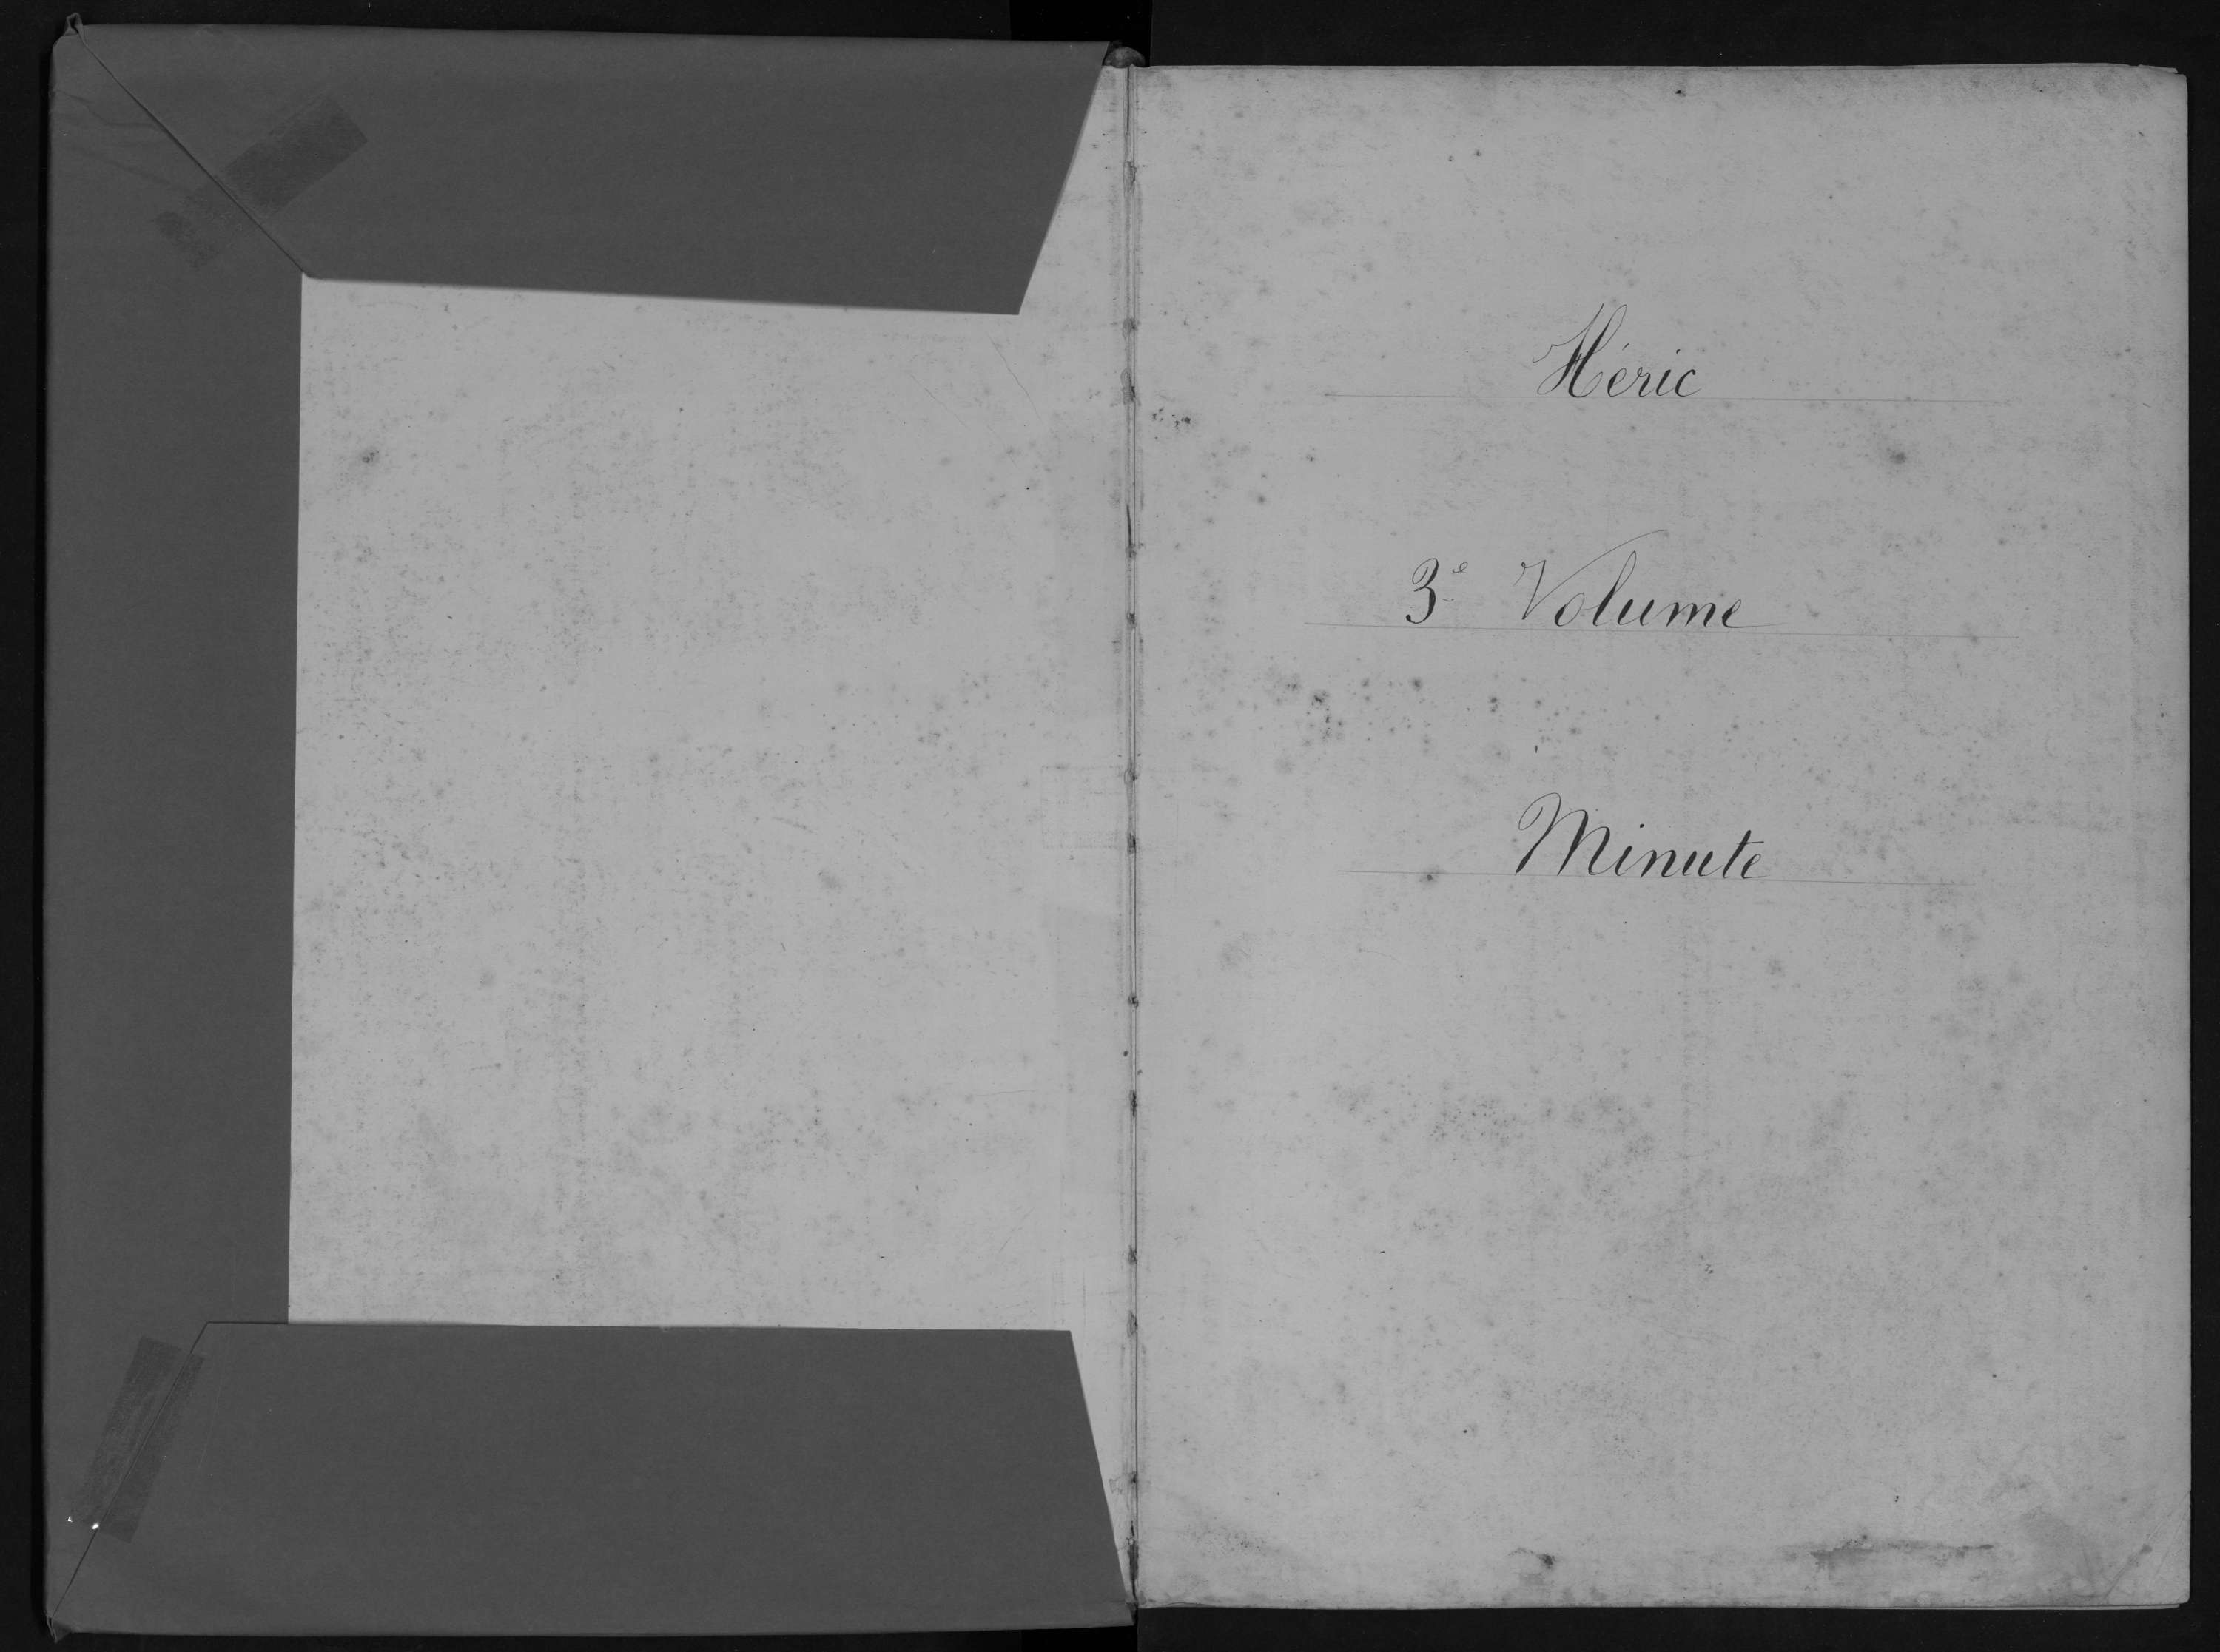 Héric
3e Volume
Minute